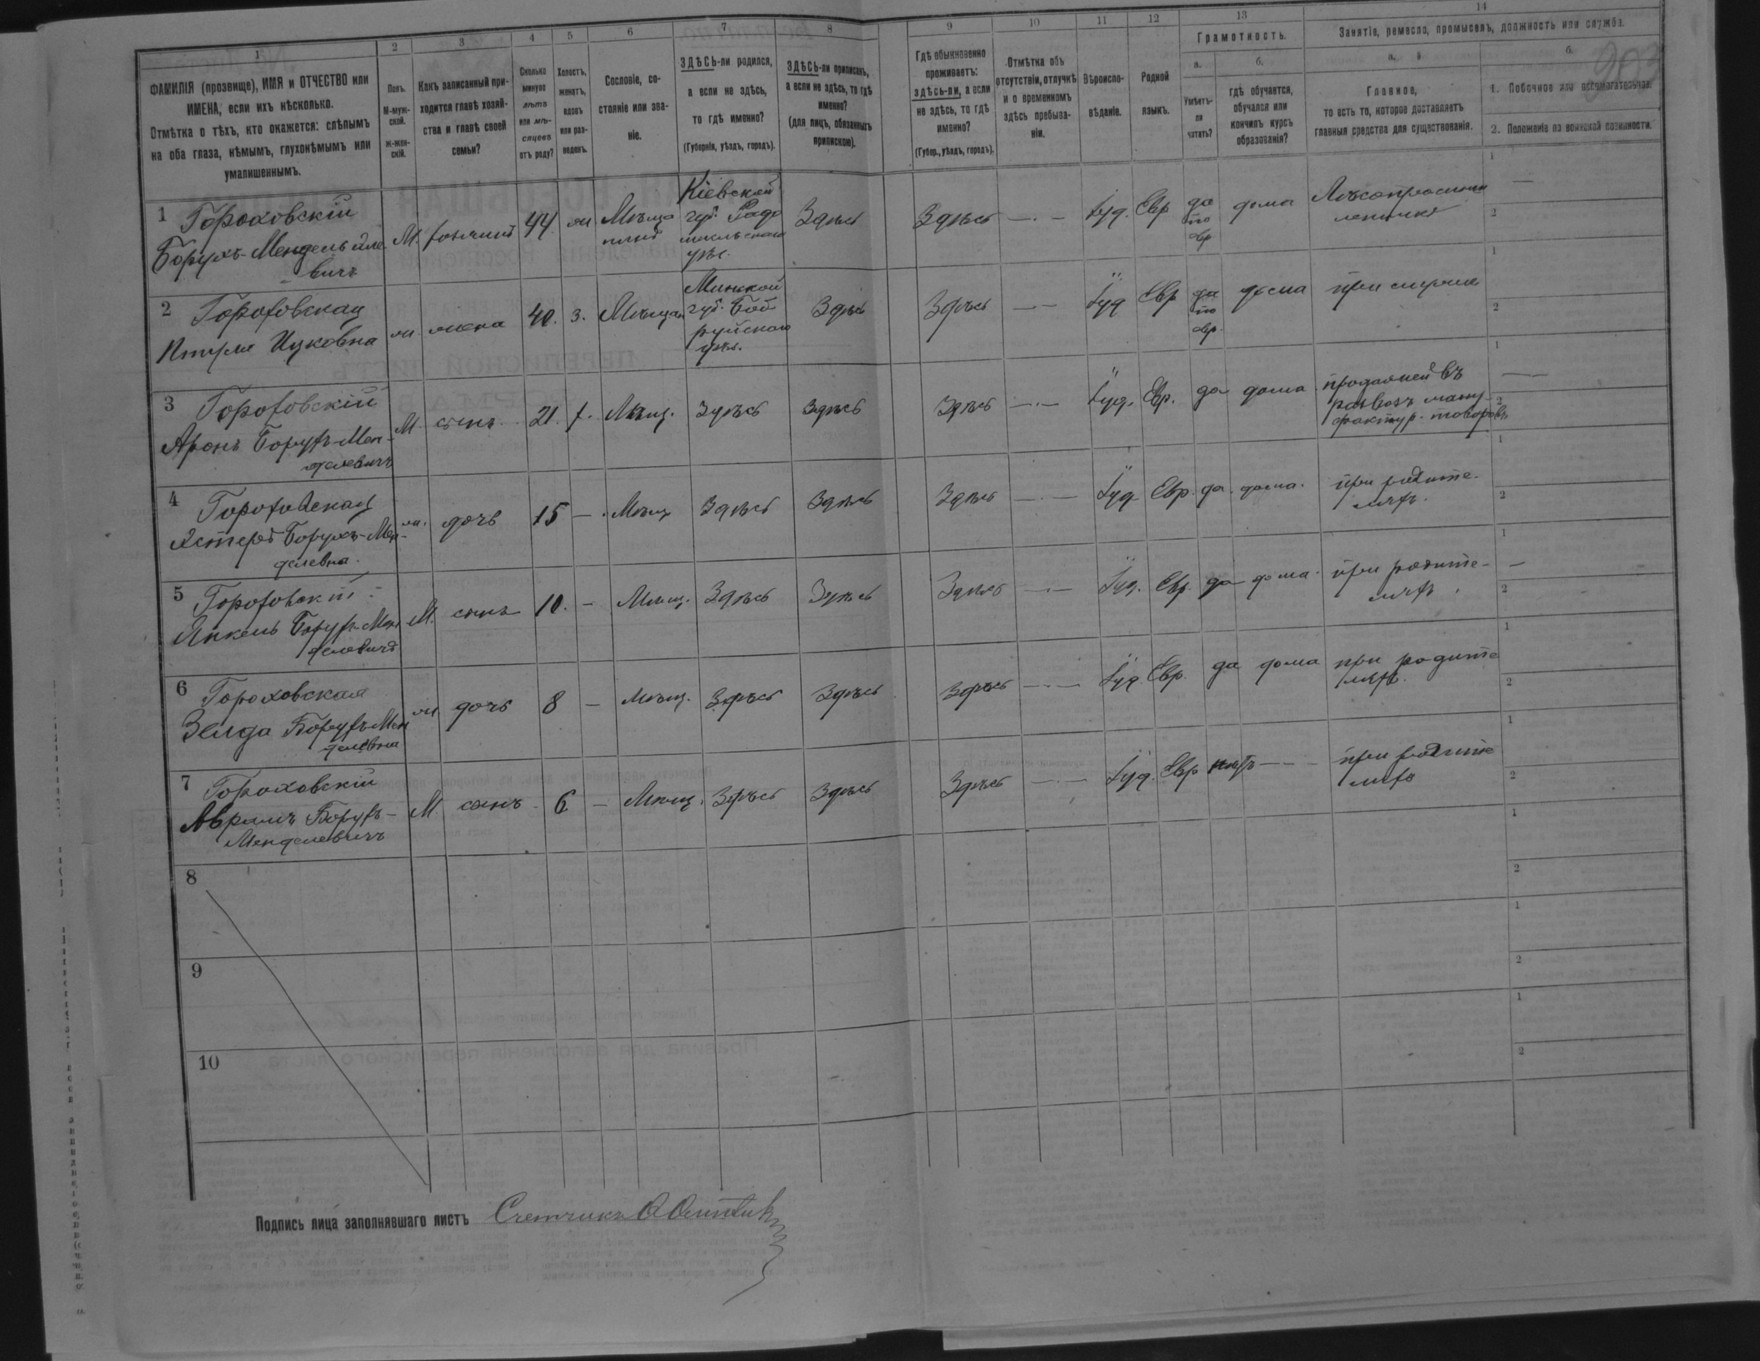 1 2 3 4 5 6 7 8 9 10 11 12 13 14
ФАМИЛІЯ (прозвище), ИМЯ и ОТЧЕСТВО или
ИМЕНА, если ихъ нѣсколько.
Отмѣтка о тѣхъ, кто окажется: слѣпымъ
на оба глаза, нѣмымъ, глухонѣмымъ или
умалишеннымъ.
Полъ.
М-муж-
ской.
ж-жен-
скій.
Какъ записанный при-
ходится главѣ хозяй-
ства и главѣ своей
семьи?
Сколько
минуло
лѣтъ
или мѣ-
сяцевъ
отъ роду?
Холостъ,
женатъ,
вдовъ
или раз-
веденъ.
Сословіе, со-
стояніе или зва-
ніе.
ЗДѢСЬ-ли родился,
а если не здѣсь,
то гдѣ именно?
(Губернія, уѣздъ, городъ).
ЗДѢСЬ-ли приписанъ,
а если не здѣсь, то гдѣ
именно?
(для лицъ, обязанныхъ
припискою).
Гдѣ обыкновенно
проживаетъ:
здѣсь-ли, а если
не здѣсь, то гдѣ
именно?
(Губер., уѣздъ, городъ).
Отмѣтка объ
отсутствіи, отлучкѣ
и о временномъ
здѣсь пребыва-
ніи.
Вѣроиспо-
вѣданіе.
Родной
языкъ.
Грамотность.
а.
Умѣетъ-
ли
читать?
б.
гдѣ обучается,
обучался или
кончилъ курсъ
образованія?
Занятіе, ремесло, промыселъ, должность или служба.
а.
Главное,
то есть то, которое доставляетъ
главныя средства для существованія.
б.
1. Побочное или вспомогательное.
2. Положеніе по воинской повинности.
1 Гороховскій
Борухъ-Мендель
вичъ
М. 44 Мѣща
Кіевской
губ. Радо
мысльскаго
уѣз.
Здѣсь Здѣсь — Іуд. Евр да дома
2 Гороховская
Ицковна
жена 40. з. Мѣщан
Минской
губ. Боб
руйскаго
уѣз.
Здѣсь Здѣсь — Іуд Евр да дома при мужѣ
3 Гороховскій
Аронъ Борухъ-Мен-
делевичъ
М. сынъ 21. х. Мѣщ. Здѣсь Здѣсь Здѣсь — Іуд. Евр. да дома
4 Гороховская
Эстеръ Борухъ-Мен-
делевна.
ж. дочь 15 — Мѣщ Здѣсь Здѣсь Здѣсь — Іуд. Евр. да дома. при родите-
ляхъ.
5 Гороховскій
Янкель Борухъ-Мен
делевичъ
М. сынъ 10. — Мѣщ. Здѣсь Здѣсь Здѣсь — Іуд. Евр. да дома. при родите-
ляхъ.
6 Гороховская
Зелда Борухъ-Мен
делевна
ж. дочь 8 — Мѣщ. Здѣсь Здѣсь Здѣсь — Іуд Евр. да дома при родите
ляхъ.
7 Гороховскій
Аврумъ Борухъ-
Менделевичъ
М. сынъ 6 — Мѣщ. Здѣсь Здѣсь Здѣсь — Іуд. Евр нѣтъ — при родите
ляхъ
8
9
10
Подпись лица заполнявшаго листъ Счетчикъ